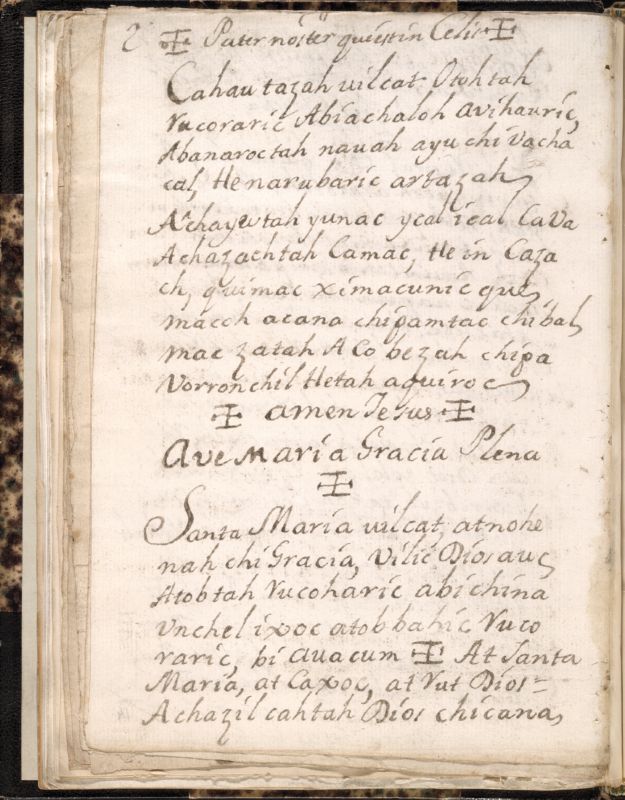 2 ✠ Pater nòstër quiestin Celis ✠
Cahau tazah vilcat Otohtah
Vucoraric Abiachaloh avihauric,
Abanaroctah nauah ayu chi Vacha
cal, Henarubaric arbazah
Achayutah yunac ycal ical CaVa
Achazachtah Camac, He in Caza
ch, quimac ximacunic que,
macch acana chipamtac chibal,
mac zatah A Co bezah chipa
Vorronchil Hetah aquiroc
✠ amen Jesus ✠
Ave Maria Gracia Plena
✠
Santa Maria vilcat, atnohe
nah chi Gracia, Vilic Dios auc,
Atobtah Vucoharic abi china
Vnchel ixoc atobbahic Vuco
raric, bi avacum ✠ At Santa
Maria, at Caxoc, at Vut Dios=
Achazil cahtah Dios chicana,